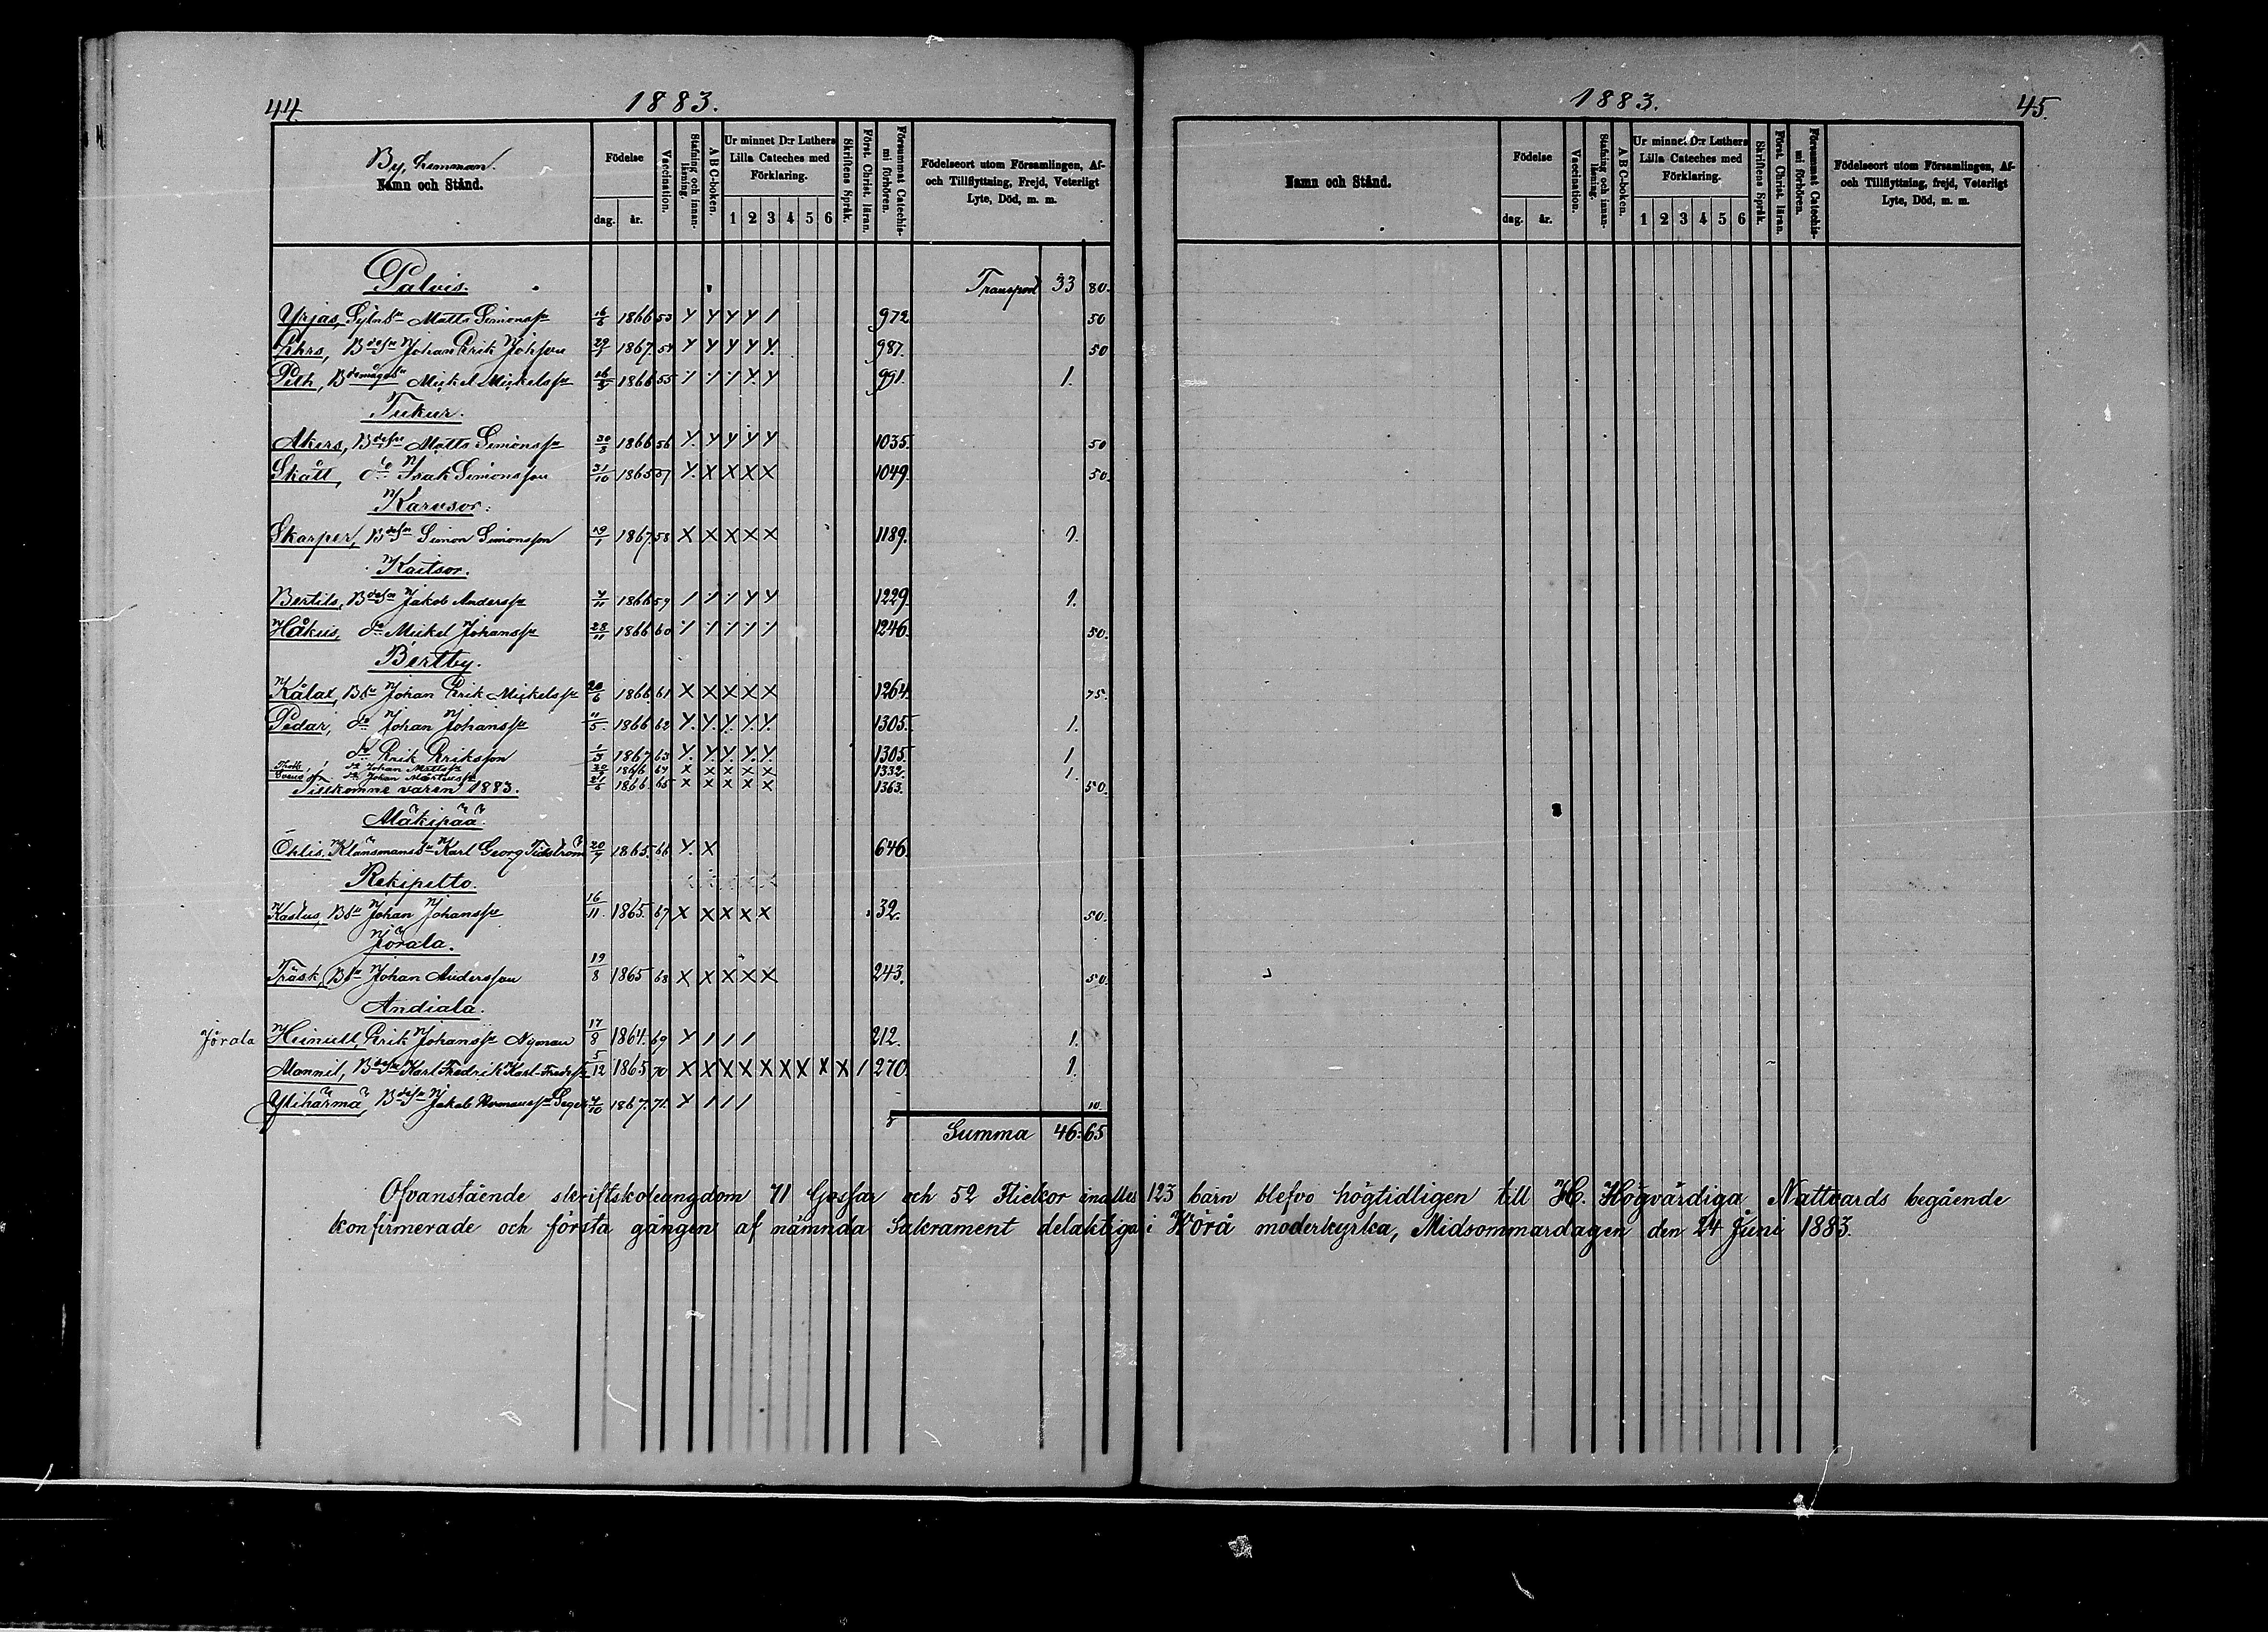 44. 1883.
By, hemman.
Namn och Stånd.
Födelse
dag. år.
Vaccination.
Stafning och innan-läsning.
A B C-boken.
Ur minnet D:r Luthers
Lilla Cateches med
Förklaring.
1 2 3 4 5 6
Skriftens Språk.
Först. Christ. lären.
Försummat Catechis-mi förhören.
Födelseort utom Församlingen, Af-
och Tillflyttning, Frejd, Veterligt
Lyte, Död, m. m.
Palvis. Transport 33 80.
Yrjas, Matts Simonss 16/6 1866 53 Y Y Y Y / 972 50
Johan Erik Johsson 1867 54 Y Y Y Y Y 987. 50
Peth, Mickel Mickelss 1866 55 991. 1.
Tukur.
Akers, Bdesn Matts Simonss 30/8 1866 56 Y Y Y Y Y 1035. 50
Skått, do Isak Simonsson 31/10 1865 57 Y X X X X 1049. 50.
Karvsor:
Skarper, Bdesn Simon Simonsson 19/1 1867 58 X X X X X 1189. 1.
Kaitsor.
Bertils, Bdesn Jakob Anderss 1866 59 1229. 1.
Håkus, do Mickel Johanss 28/11 1866 60 1246. 50.
Bertby.
Kålax, Johan Erik Mickelss 1866 61 X X X X X 1264. 75.
Pedar, do Johan Johanss 11/5 1866 62 Y Y Y Y Y 1305. 1.
do Erik Eriksson 1/3 1867 63 Y Y Y Y Y 1305. 1
do Johan Mattss 1866 64 X X X X X 1332. 1.
do Johan 1866 65 X X X X X 1363. 50.
Tillkomne våren 1883.
Mäkipää.
Öhlis, Klänsmanss Karl Georg Tidström 20/9 1865 66 Y. X 646.
Rekipelto.
Kastus, Johan Johanss 16/11 1865. 67 X X X X X 32. 50.
Jörala.
Träsk, Johan Andersson 19/8 1865 68 X X X X X 243. 50.
Andiala.
Jörala Heinull, Erik Johanss Nyman 17/8 1864. 69 Y / / / 212. 1.
Mannil, Bdesn Karl Fredrik Karl-Fredrss 5/12 1865 70 X X X X X X X X X / 270. 1.
Yliharmä, Bdesn Jakob 1867. 71. Y / / / 10.
Summa 46:65
Ofvanstående skriftskoleungdom 71 Gossar och 52 Flickor inalles 123 barn blefvo högtidligen till H. Högvärdiga Nattvards begående
konfirmerade och första gången af nämnda Sakrament delaktiga i Wörå moderkyrka, Midsommardagen den 24 Juni 1883.
1883. 45.
Namn och Stånd.
Födelse
dag. år.
Vaccination.
Stafning och innan-läsning.
A B C-boken.
Ur minnet D:r Luthers
Lilla Cateches med
Förklaring.
1 2 3 4 5 6
Skriftens Språk.
Först. Christ. lären.
Försummat Catechis-mi förhören.
Födelseort utom Församlingen, Af-
och Tillflyttning, frejd, Veterligt
Lyte, Död, m. m.